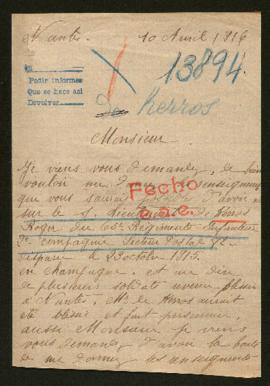 Nantes 10 Avril 1916
13894.
Pedir informes
Que se hace así
Devolver
de Kerros
Monsieur
Je viens vous demander, de bien
vouloir me
Fecho
que vous
e.a.e.
sur le s. Lieutenant de Kerros
Roger du 65e Régiment Infanterie
7e compagnie Secteur Postal 92
disparu le 2 Octobre 1915.
en Champagne. et au dire
de plusieurs soldats
à Nantes, M. de Kerros aurait
été blessé et fait prisonnier.
aussi Monsieur je viens
vous demander d'avoir la bonté
de me donner les renseignements